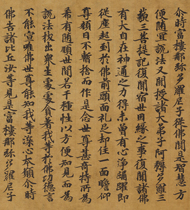 尒時富樓那弥多羅尼子從佛聞是智慧方
便隨宜說法又聞授諸大弟子阿耨多羅三
藐三菩提記復聞宿世因緣之事復聞諸佛
有大自在神通之力得未曾有心淨踊躍即
從座起到於佛前頭面礼足却住一面瞻仰
尊顏目不暫捨而作是念世尊甚奇特所為
希有隨順世間若干種性以方便知見而為
說法拔出眾生處處貪著我等於佛功德言
不能宣唯佛世尊能知我等深心本願尒時
佛告諸比丘汝等見是富樓那弥多羅尼子